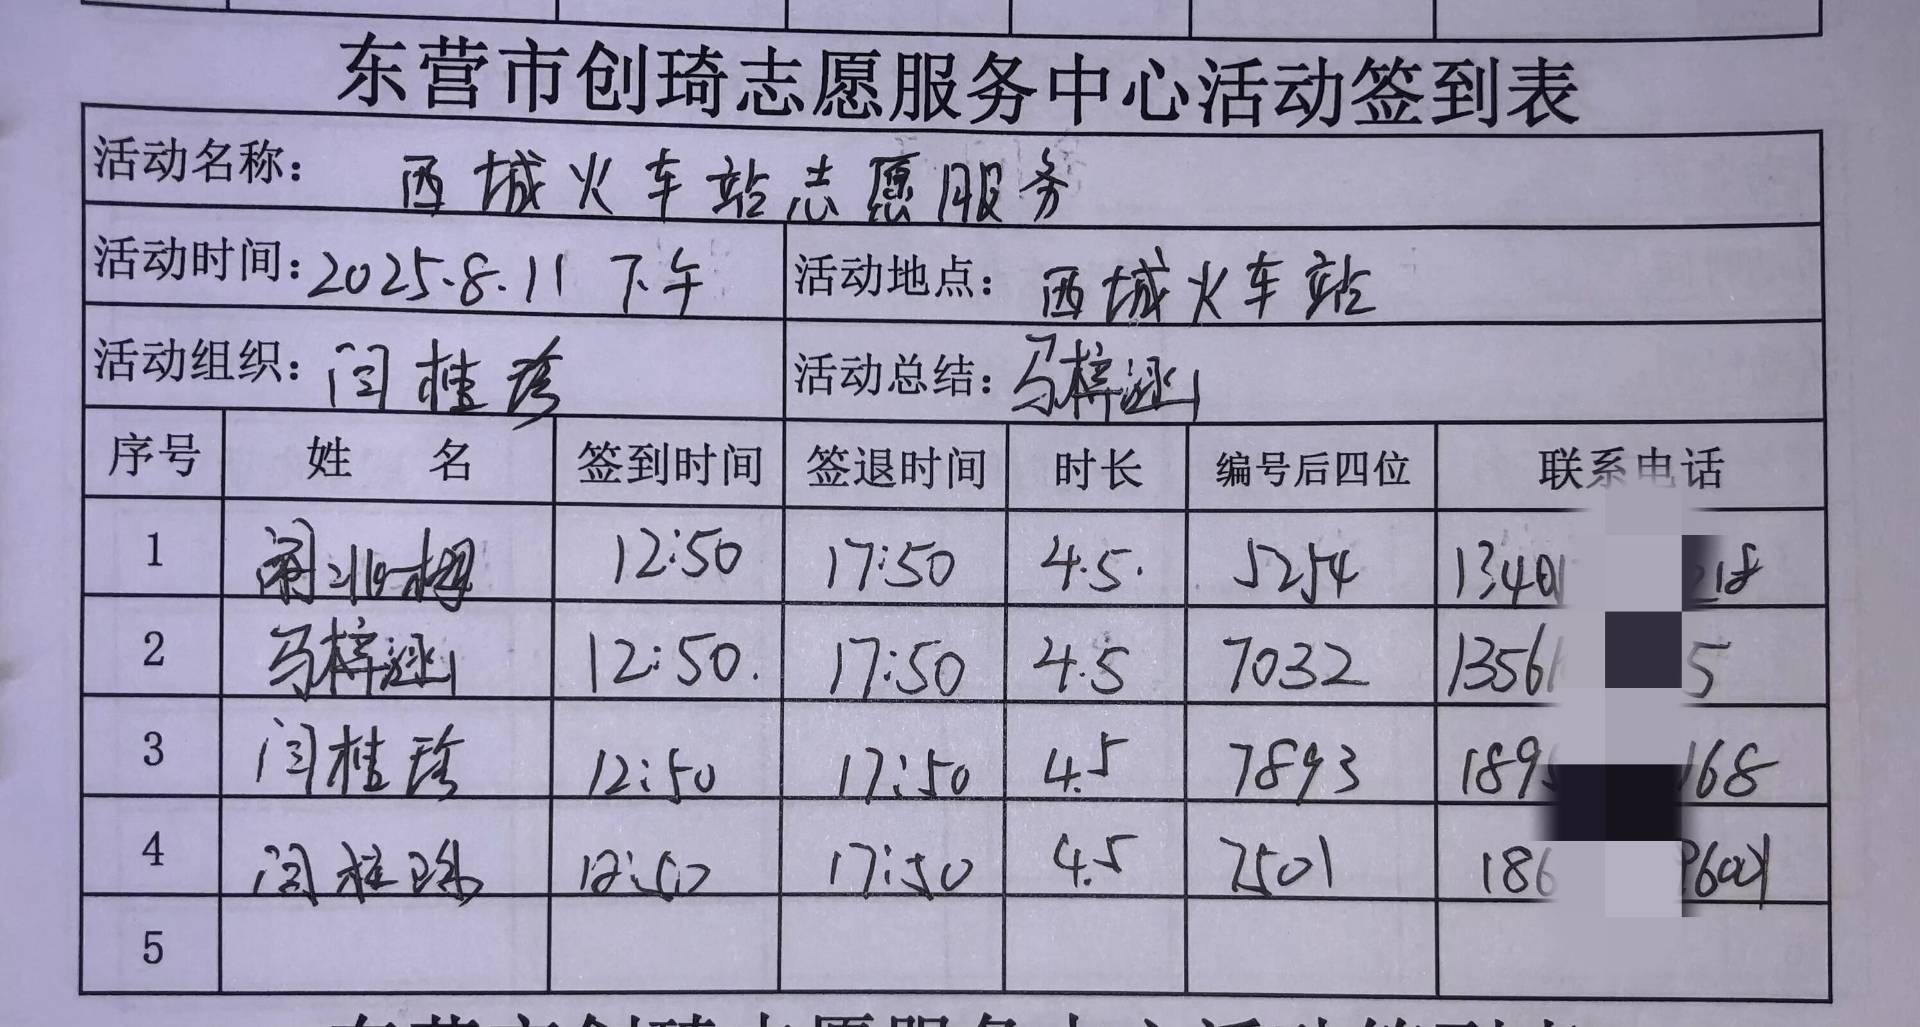 东营市创琦志愿服务中心活动签到表
活动名称： 西城火车站志愿服务
活动时间：2025.8.11 下午 活动地点： 西城火车站
活动组织：闫桂珍 活动总结：马梓涵
序号 姓 名 签到时间 签退时间 时长 编号后四位 联系电话
1 12:50 17:50 4.5. 5254 1340 218
2 马梓涵 12:50. 17:50 4.5 7032 1356 5
3 闫桂珍 12:50 17:50 4.5 7893 189 168
4 闫桂 12:50 17:50 4.5 7501 186 9601
5
东营市创琦志愿服务中心活动签到表